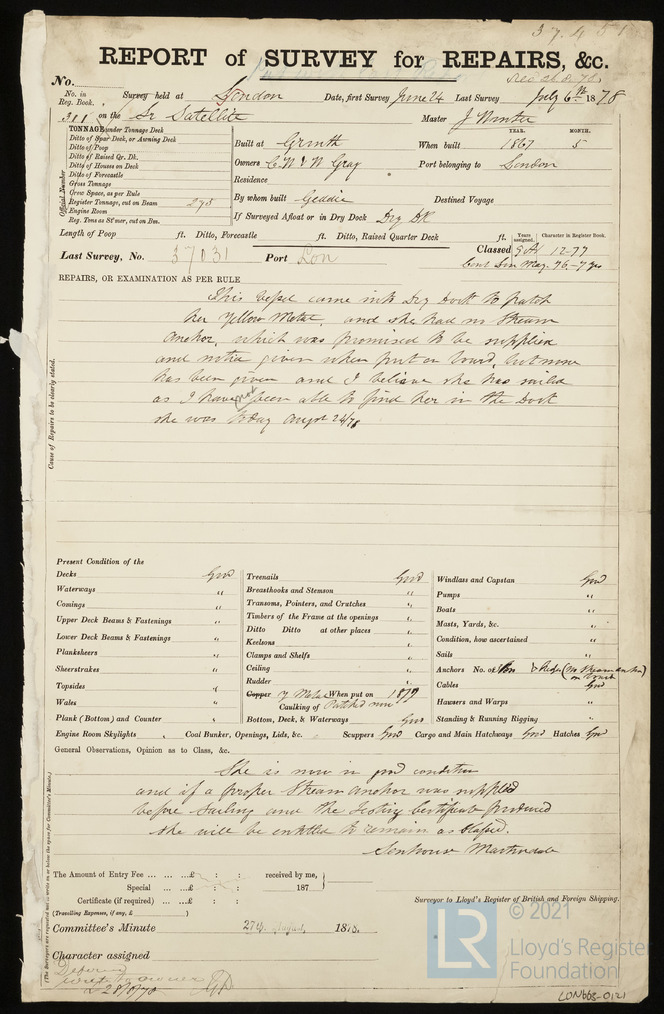 37451
REPORT of SURVEY for REPAIRS, &c.
Rec 26.8.78
No.
No. in Reg. Book. Survey held at London Date, first Survey June 24 Last Survey July 6th 1878
381 on the Sr Satellite Master J Winter
TONNAGE under Tonnage Deck
Ditto of Spar Deck, or Awning Deck
Ditto of Poop
Ditto of Raised Qr. Dk.
Ditto of Houses on Deck
Ditto of Forecastle
Gross Tonnage
Crew Space, as per Rule
Register Tonnage, cut on Beam 275
Engine Room
Reg. Tons as St'mer, cut on Bm.
Official Number
YEAR. MONTH.
Built at When built 1867 5
Owners C N & W Gray Port belonging to London
Residence
By whom built Geddie Destined Voyage
If Surveyed Afloat or in Dry Dock Dry Dk
Length of Poop ft. Ditto, Forecastle ft. Ditto, Raised Quarter Deck ft.
Years assigned. Character in Register Book.
Last Survey, No. 37031 Port Lon Classed 9 A1 12-77
May. 76-7 yrs
REPAIRS, OR EXAMINATION AS PER RULE
Cause of Repairs to be clearly stated.
This vessel came into Dry Dock to patch
her Yellow Metal, and she had no Stream
Anchor, which was promised to be supplied
and notice given when put on board, but none
has been given and I believe she has sailed
as I have not been able to find her in the Dock
she was today Augst 24/78
Present Condition of the
Decks Good
Waterways "
Comings "
Upper Deck Beams & Fastenings "
Lower Deck Beams & Fastenings "
Planksheers "
Sheerstrakes "
Topsides "
Wales "
Plank (Bottom) and Counter "
Treenails Good
Breasthooks and Stemson "
Transoms, Pointers, and Crutches "
Timbers of the Frame at the openings "
Ditto Ditto at other places "
Keelsons "
Clamps and Shelfs "
Ceiling "
Rudder "
Copper Y Metal When put on
Caulking of Patched now
Bottom, Deck, & Waterways Good
Windlass and Capstan Good
Pumps "
Boats "
Masts, Yards, &c. "
Condition, how ascertained "
Sails "
Anchors No. of (No Stream an on board)
Cables Good
Hawsers and Warps "
Standing & Running Rigging "
Engine Room Skylights " Coal Bunker, Openings, Lids, &c. " Scuppers Good Cargo and Main Hatchways Good Hatches Good
General Observations, Opinion as to Class, &c.
She is now in good condition
and if a proper Stream Anchor was supplied
before sailing and the Testing Certificate produced
she will be entitled to remain as Classed.
Senhouse Martindale
(The Surveyors are requested not to write on or below the space for Committee's Minute.)
The Amount of Entry Fee ... ... ...£ : : received by me,
Special ... ...£ : : 187
Certificate (if required) ... ...£ : :
(Travelling Expenses, if any, £ )
Surveyor to Lloyd's Register of British and Foreign Shipping.
Committee's Minute 27th August, 1878.
Character assigned
Deferred
write to owner
28/8/78
LR
© 2021
Lloyd's Register
Foundation
LON668-0121